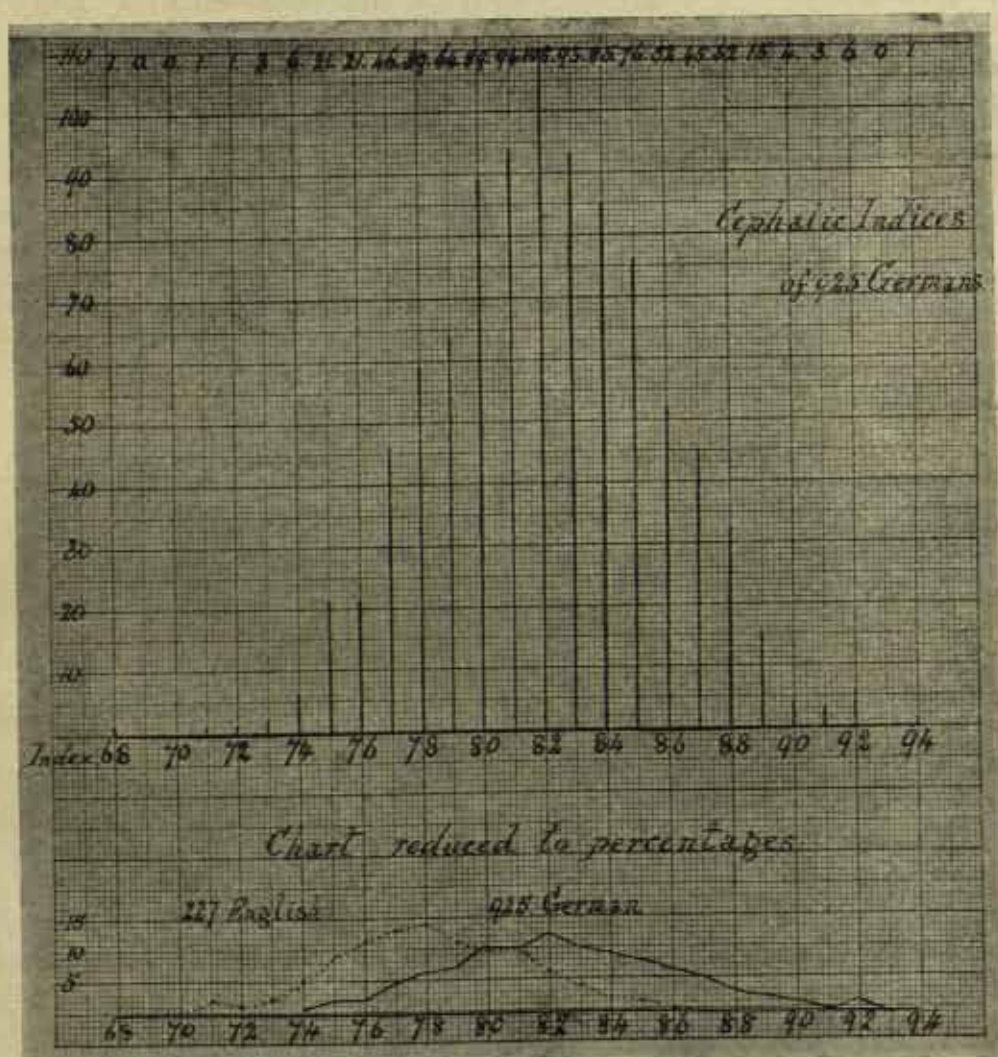 110 1 0 0 1 1 2 6 21 21 46 59 64 89 94 108 93 85 76 52 45 32 15 4 3 6 0 1
100
90
Cephalic Indices
80
of 925 Germans
70
60
50
40
30
20
10
Index 68 70 72 74 76 78 80 82 84 86 88 90 92 94
Chart reduced to percentages
227 English 925 German
15
10
5
68 70 72 74 76 78 80 82 84 86 88 90 92 94